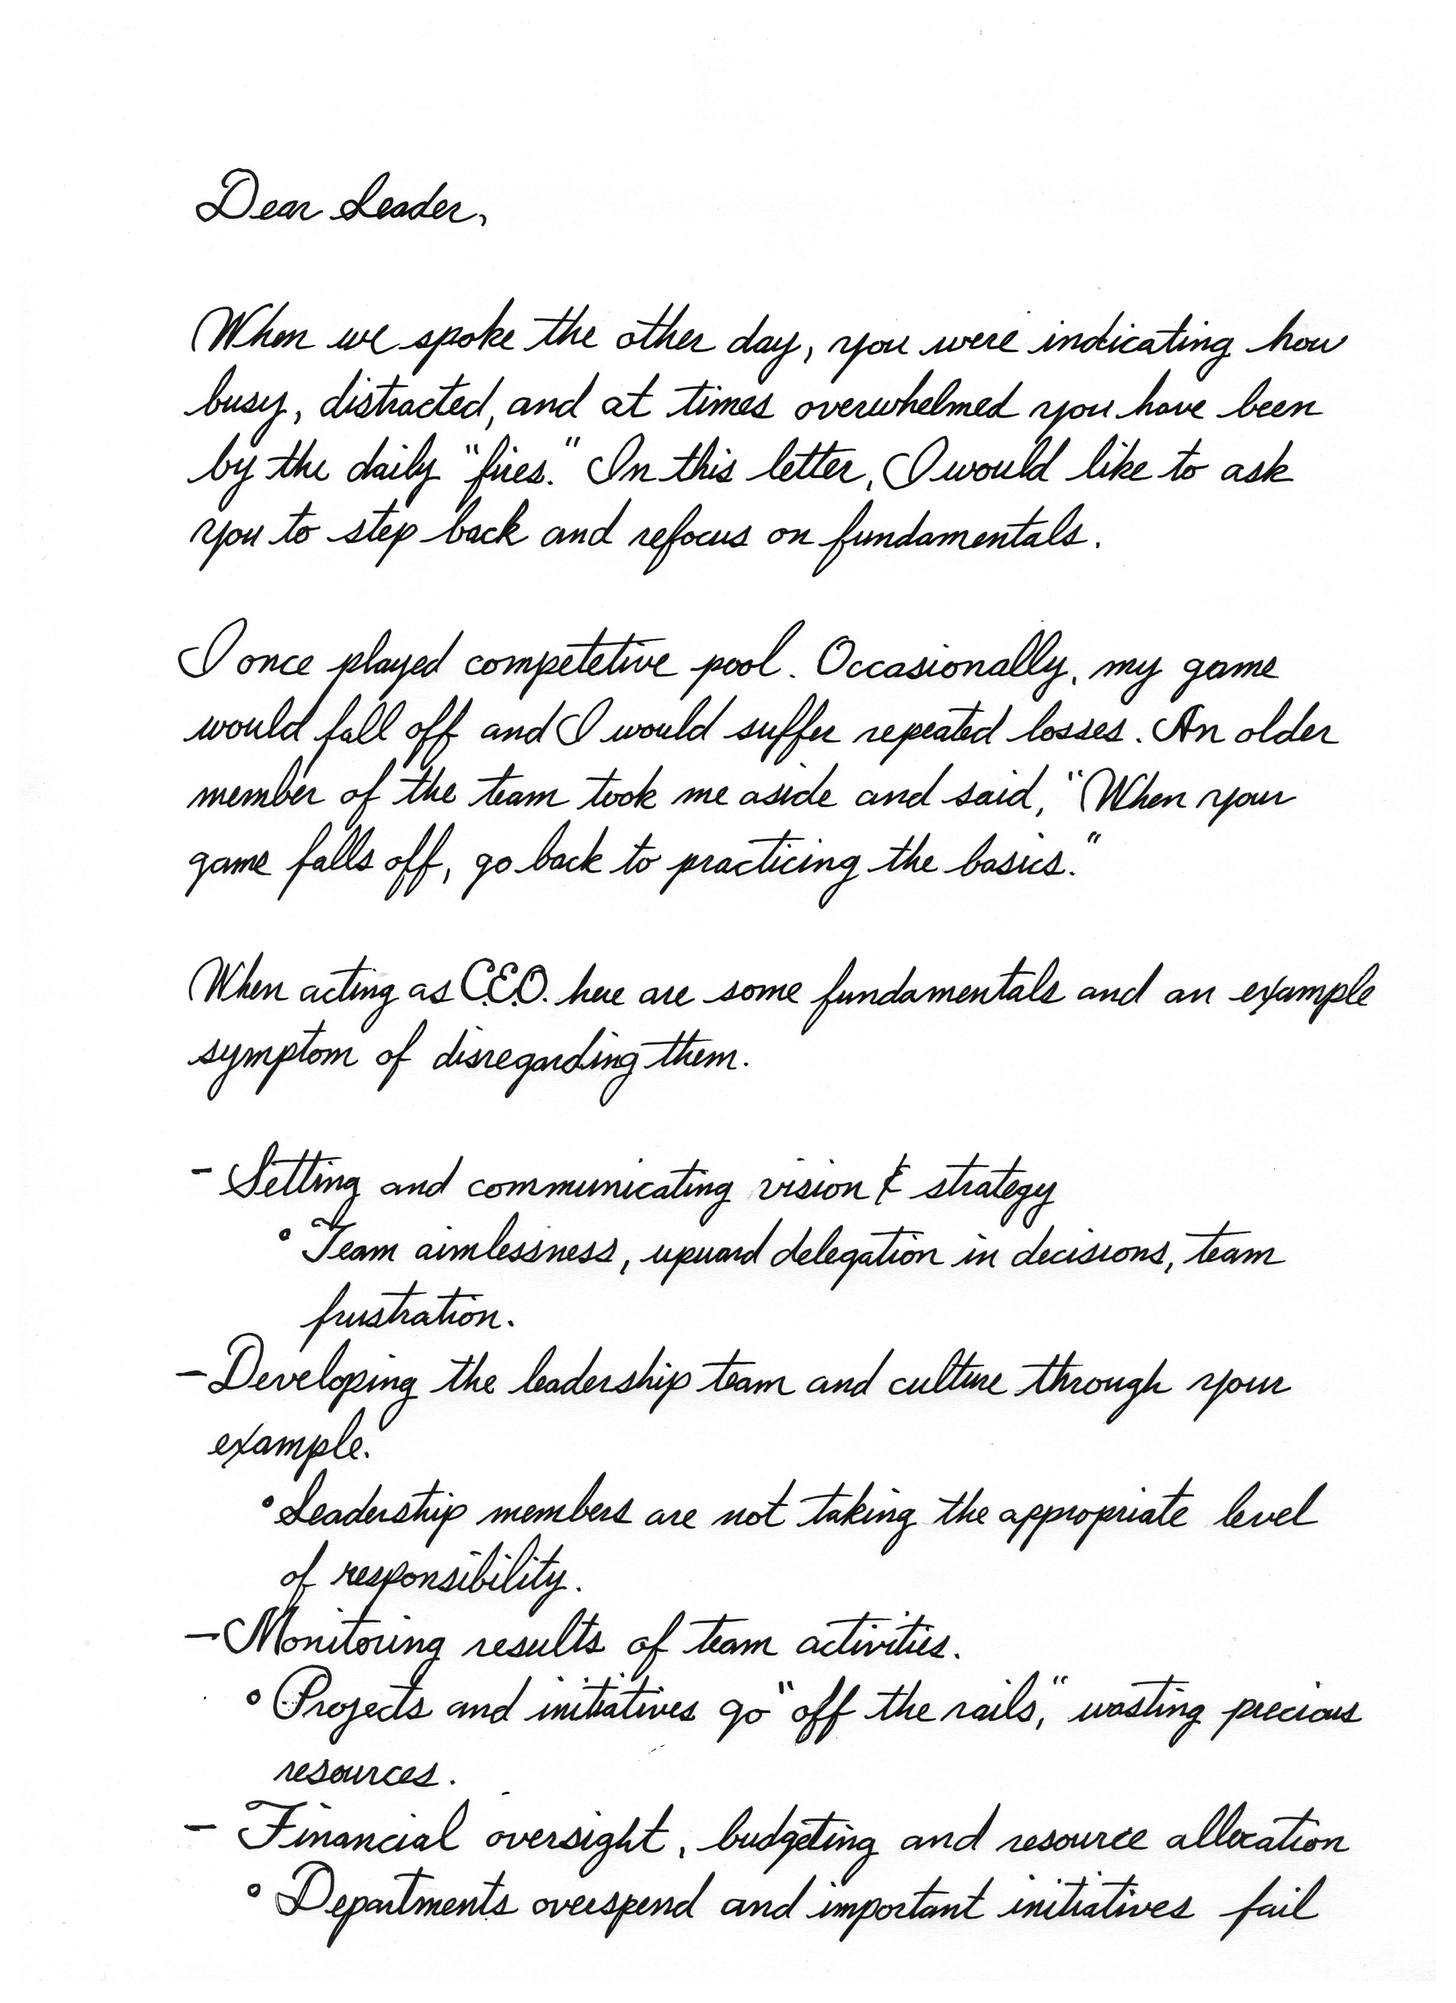 Dear Leader,
When we spoke the other day, you were indicating how
busy, distracted, and at times overwhelmed you have been
by the daily "fires." In this letter, I would like to ask
you to step back and refocus on fundamentals.
I once played competetive pool. Occasionally, my game
would fall off and I would suffer repeated losses. An older
member of the team took me aside and said, "When your
game falls off, go back to practicing the basics."
When acting as C.E.O. here are some fundamentals and an example
symptom of disregarding them.
- Setting and communicating vision & strategy
° Team aimlessness, upward delegation in decisions, team
frustration.
- Developing the leadership team and culture through your
example.
° Leadership members are not taking the appropriate level
of responsibility.
- Monitoring results of team activities.
° Projects and initiatives go "off the rails," wasting precious
resources.
- Financial oversight, budgeting and resource allocation
° Departments overspend and important initiatives fail